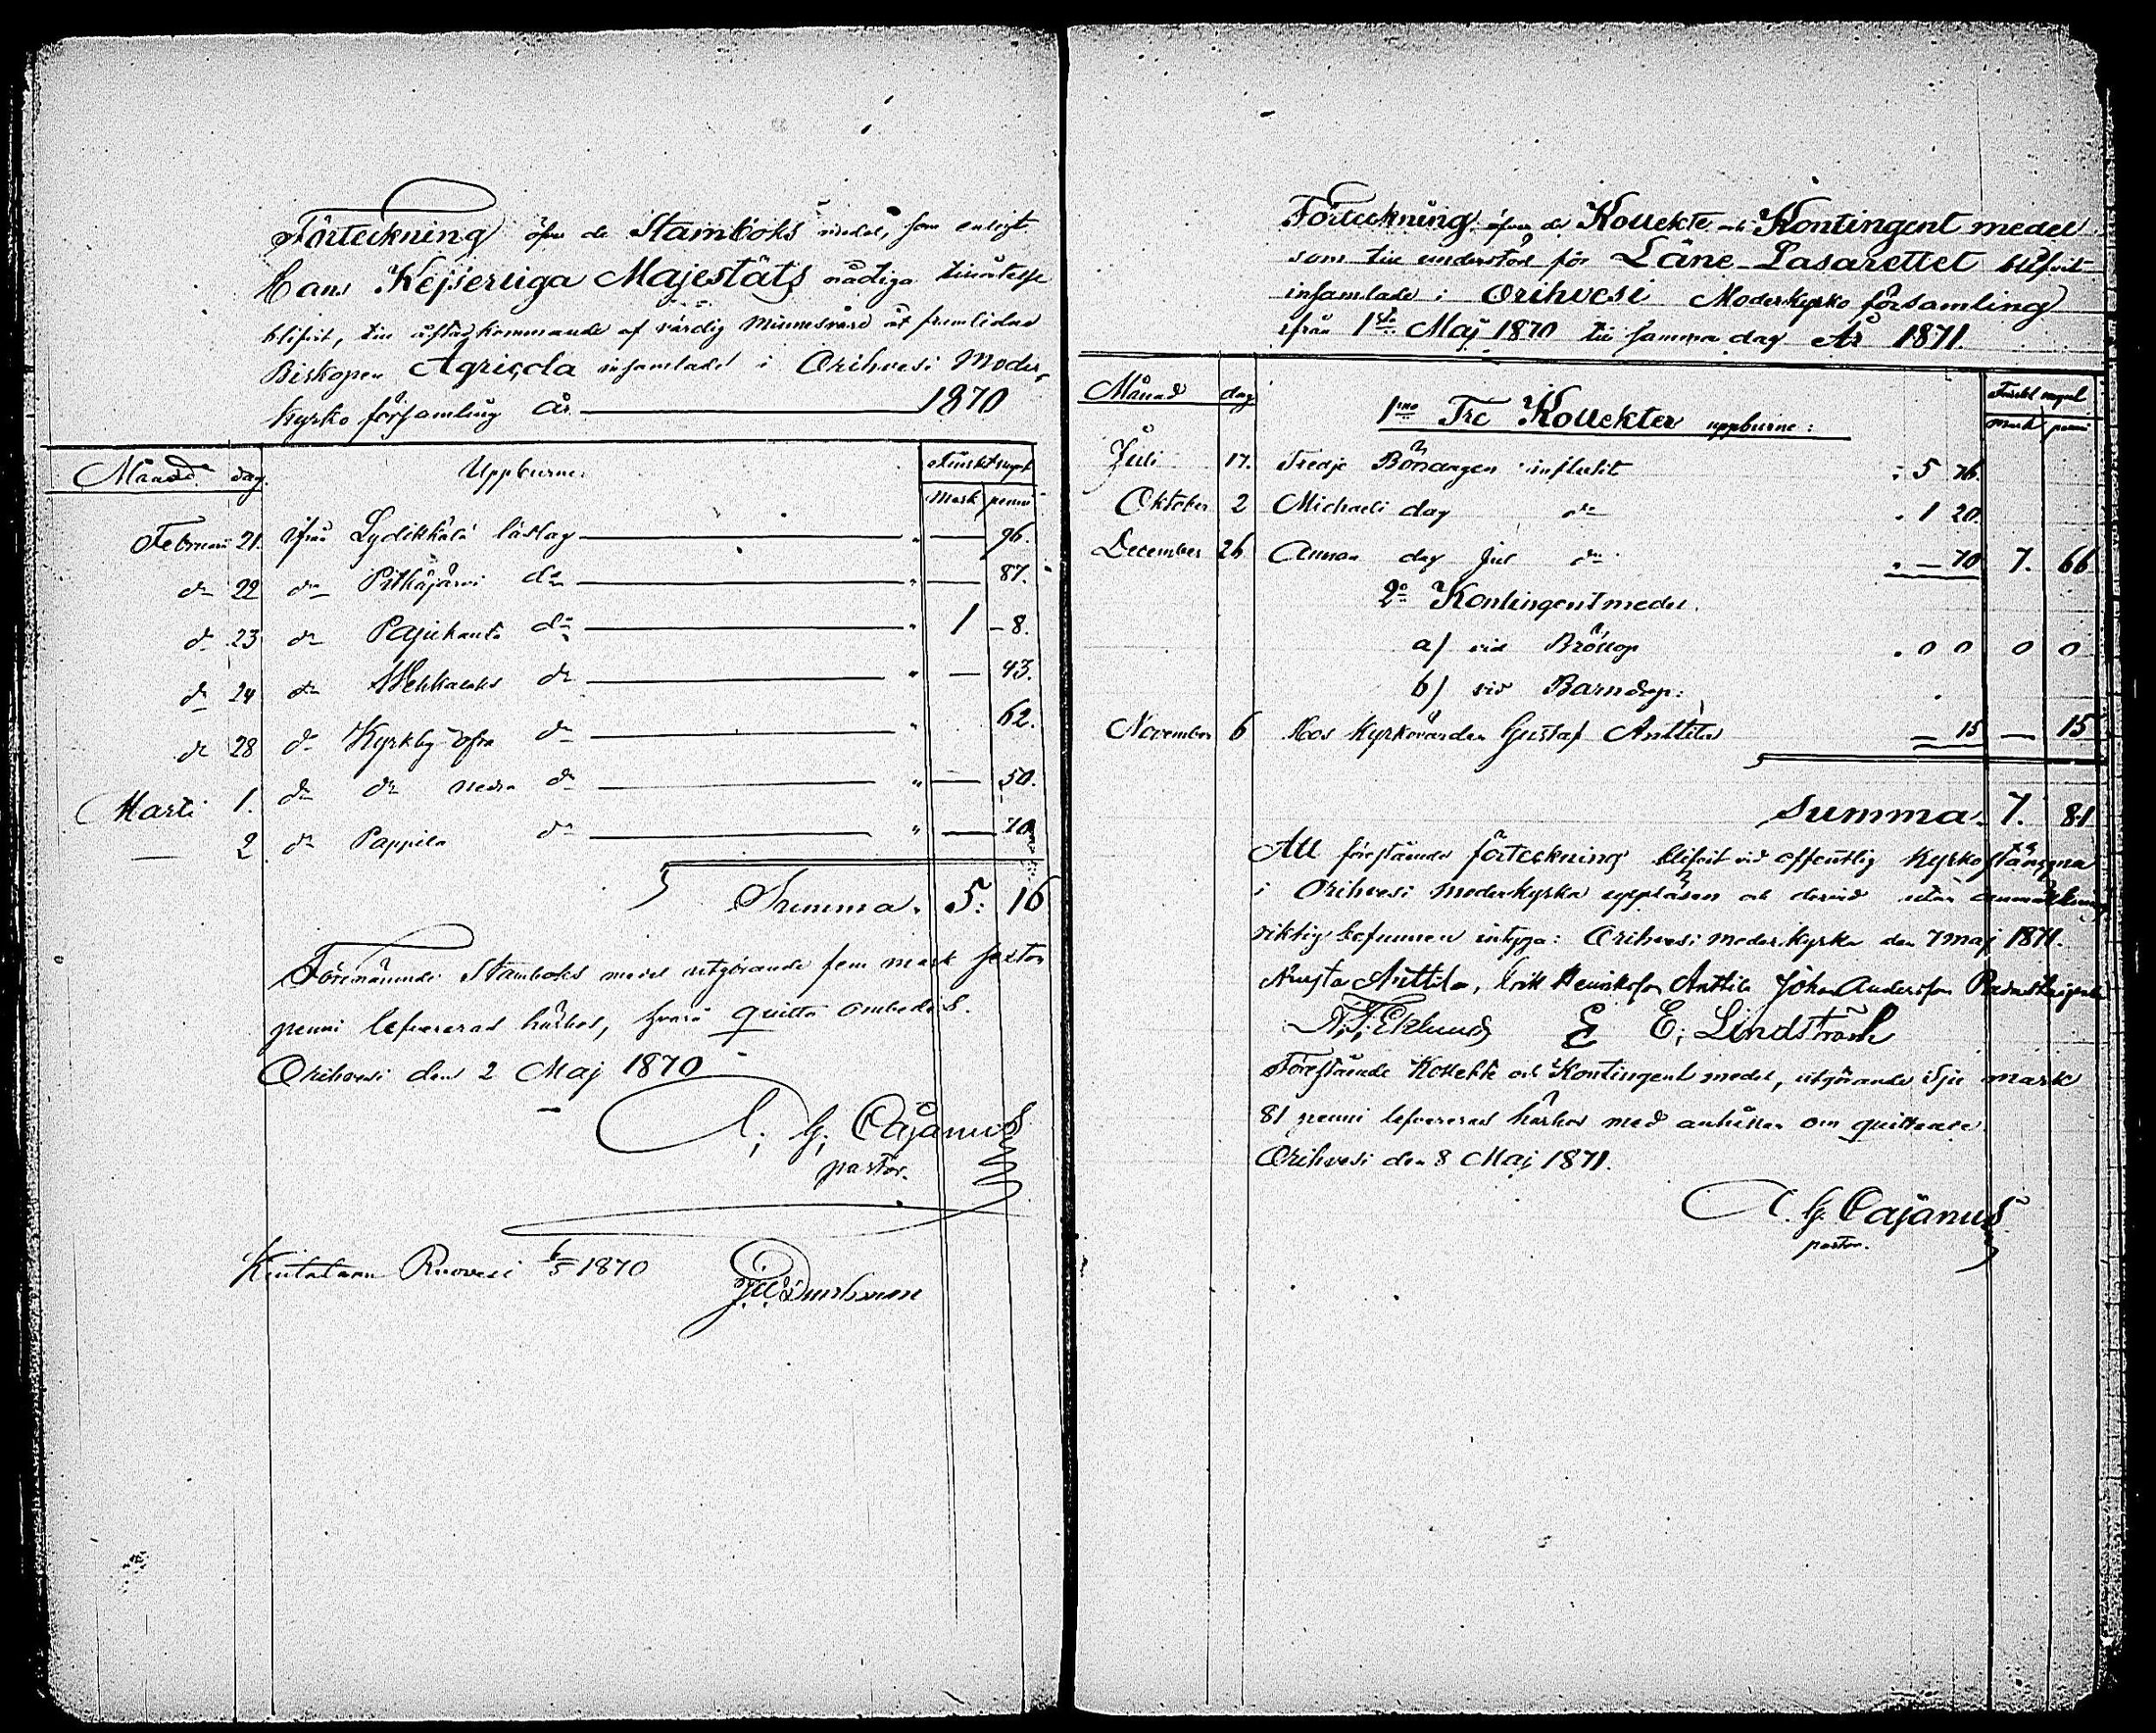 Förteckning öfver de Stamboks medel, som enligt
Hans Kejserliga Majestäts nådiga tillåtelse
blifvit, till åstadkommande af värdig minnesvård åt framlidne
Biskopen Agricola insamlade i Orihvesi Moder-
kyrko församling År 1870
Månad dag. Uppburne: Finskt mynt
Mark penni
Februari 21. ifrån Lydikkälä läslag " — 96.
do 22 do Pitkäjärvi do " — 87.
do 23 do Pajukanta do " 1 - 8.
do 24 do do " — 43.
do 28 do Kyrkby öfra do " 62.
Marti 1. do do nedra do " — 50.
— 2 do Pappila do " — 70
Summa. 5: 16
Förenämnde Stamboks medel utgörande fem mark sexton
penni lefvereras härhos, hvarå quitto ombedes.
Orihvesi den 2 Maj 1870
A. G. Cajanus
pastor.
Ruovesi 6/5 1870
Förteckning öfver de Kollekte och Kontingent medel
som till understöd för Läne-Lasarettet blifvit
insamlade i Orihvesi Moderkyrko församling
ifrån 1sta Maj 1870 till samma dag År 1871.
Månad dag Finskt mynt
1mo Tre Kollekter uppburne: Mark penni
Juli 17. Tredje Böndagen influtit : 5 76.
Oktober 2 Michaeli dag do . 1 20.
December 26 Annan dag Jul do . — 70 7. 66
2o Kontingent medel.
a) vid Bröllop . 0 0 0 0
b) vid Barndop:
November 6 Hos Kyrkovärden Gustaf Anttila — 15 — 15
Summa. 7. 81
Att förestående förteckning blifvit vid offentlig Kyrkostämma
i Orihvesi moderkyrka uppläsen och dervid utan anmärkning
riktig befunnen intyga: Orihvesi moderkyrka den 7 maj 1871.
Kusta Anttila, Erik Henriksson Anttila Johan Andersson
Eklund E E. Lindström
Förestående Kollekte och Kontingent medel, utgörande sju mark
81 penni lefvereras härhos med anhållan om quittence.
Orihvesi den 8 Maj 1871.
A. G. Cajanus
pastor.